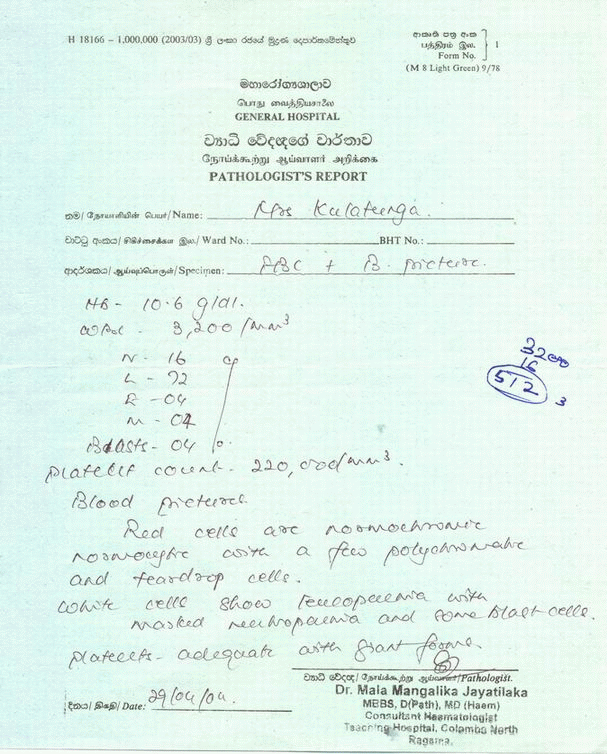 H 18166 – 1,000,000 (2003/03) ශ්‍රී ලංකා රජයේ මුද්‍රණ දෙපාර්තමේන්තුව
ආකෘති පත්‍ර අංක
பத்திரம் இல. } 1
Form No.
(M 8 Light Green) 9/78
මහාරෝග්‍යශාලාව
பொது வைத்தியசாலை
GENERAL HOSPITAL
ව්‍යාධි වේදඥගේ වාර්තාව
நோய்க்கூற்று ஆய்வாளர் அறிக்கை
PATHOLOGIST'S REPORT
නම/நோயாளியின் பெயர்/Name: Mrs Kulatunga.
වාට්ටු අංකය/சிகிச்சைக்கள இல./Ward No.: BHT No.:
ආදර්ශකය/ஆய்வுப்பொருள்/Specimen: FBC + B. picture.
HB - 10.6 g/dl.
WBC - 3,200/mm³
N - 16 %
L - 72
E - 04
M - 04
Blasts - 04
3200
16
512
3
Platelet count - 220,000/mm³.
Blood picture
Red cells are normochromic
normocytic with a few polychromatic
and teardrop cells.
White cells show leucopaenia with
marked neutropaenia and some blast cells.
Platelets - adequate with giant forms.
ව්‍යාධි වේදඥ/நோய்க்கூற்று ஆய்வாளர்/Pathologist.
Dr. Mala Mangalika Jayatilaka
MBBS, D(Path), MD (Haem)
Consultant Haematologist
Teaching Hospital, Colombo North
Ragama.
දිනය/திகதி/Date: 29/04/04.